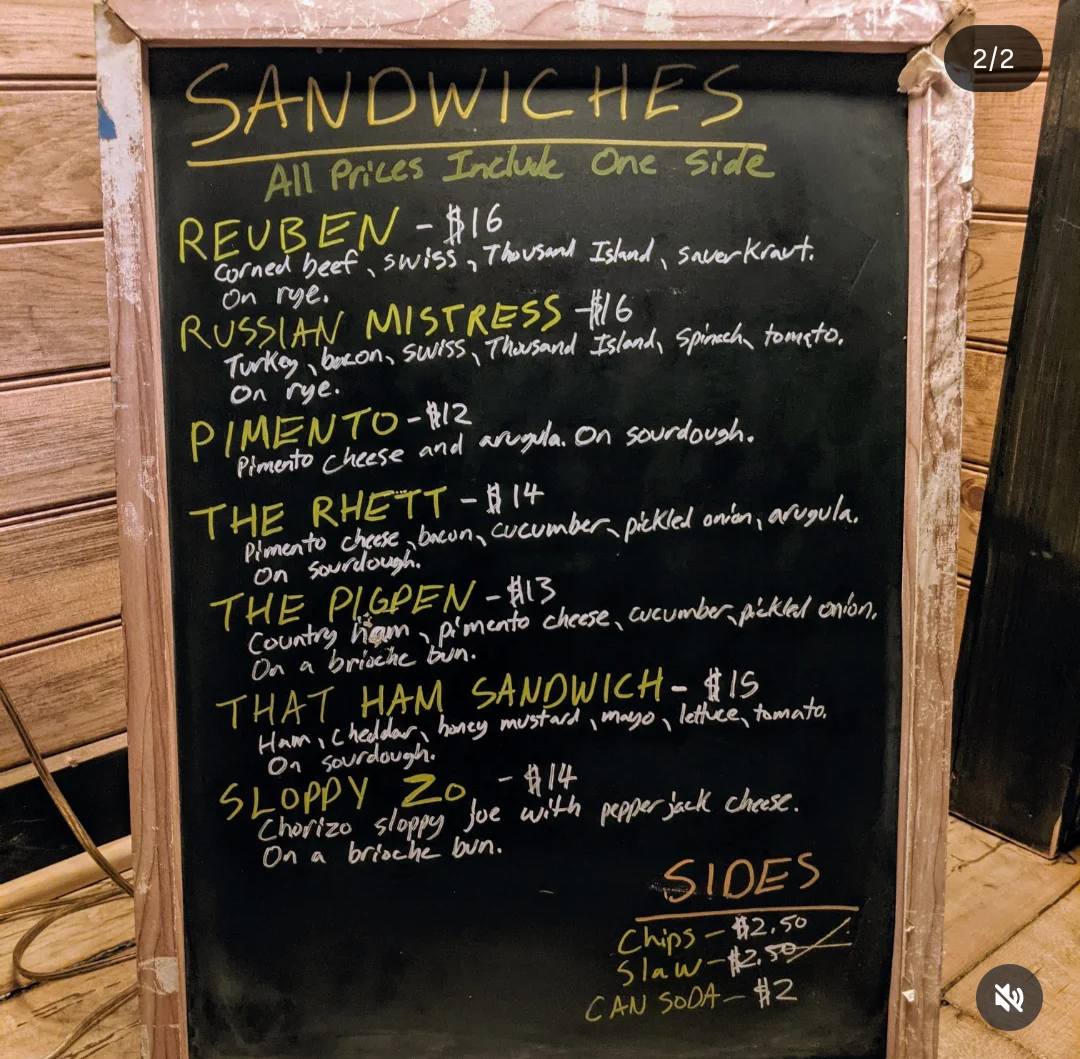 2/2
SANDWICHES
All Prices Include One Side
REUBEN - $16
Corned beef, swiss, Thousand Island, sauerkraut.
On rye.
RUSSIAN MISTRESS - $16
Turkey, bacon, swiss, Thousand Island, spinach, tomato.
On rye.
PIMENTO - $12
Pimento cheese and arugula. On sourdough.
THE RHETT - $14
Pimento cheese, bacon, cucumber, pickled onion, arugula.
On sourdough.
THE PIGPEN - $13
Country ham, pimento cheese, cucumber, pickled onion.
On a brioche bun.
THAT HAM SANDWICH - $15
Ham, cheddar, honey mustard, mayo, lettuce, tomato.
On sourdough.
SLOPPY ZO - $14
Chorizo sloppy joe with pepper jack cheese.
On a brioche bun.
SIDES
Chips - $2.50
Slaw - $2.50
CAN SODA - $2